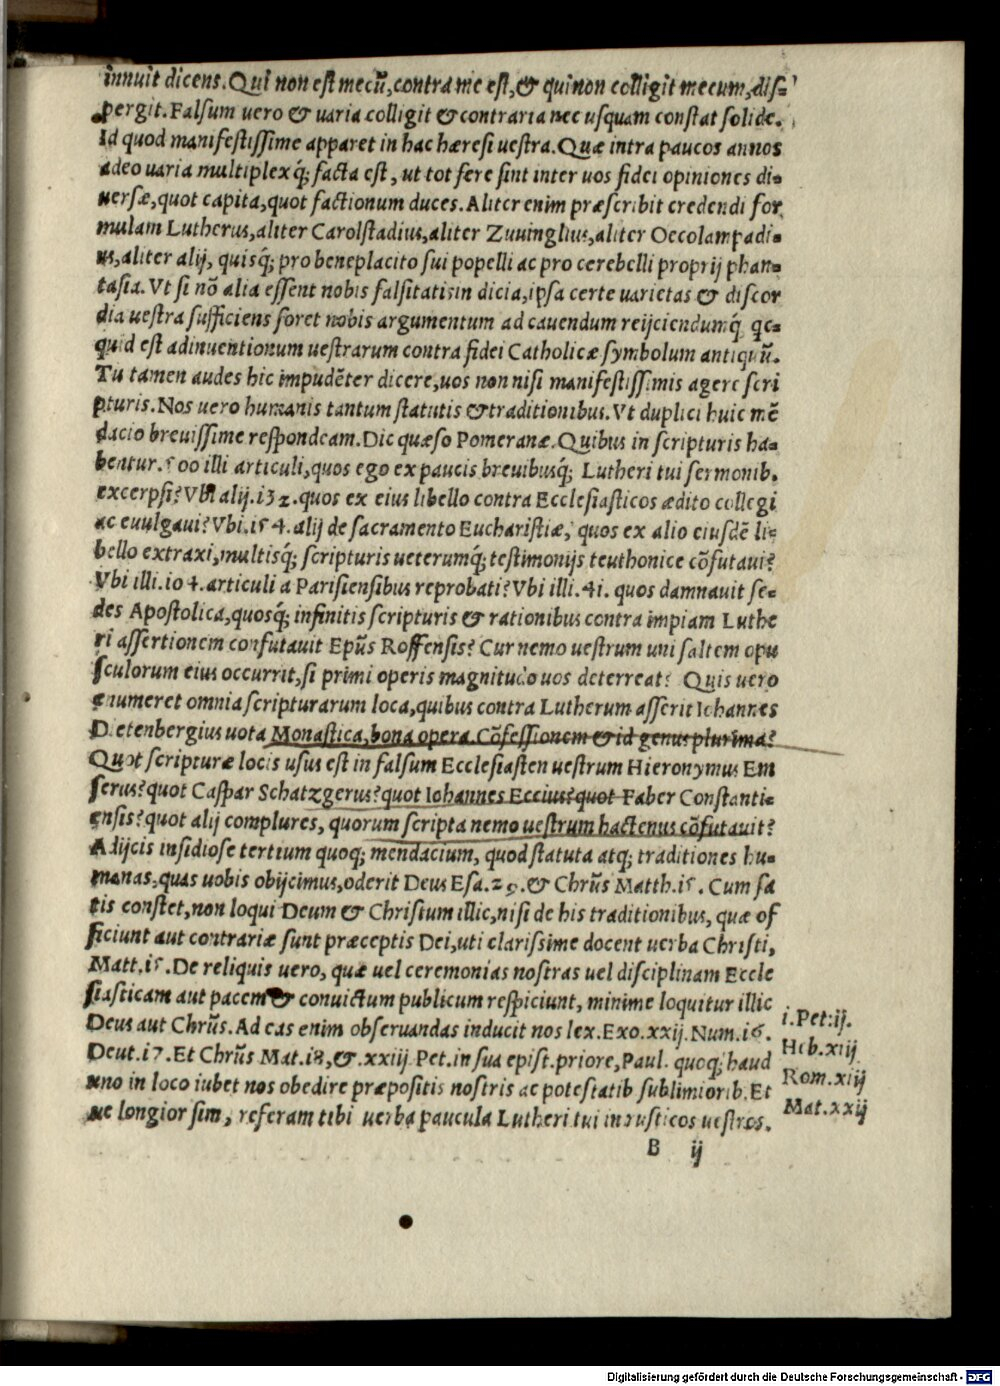 innuit dicens. Qui non est mecũ, contra me est, & qui non colligit mecum, dis-
pergit. Falsum uero & uaria colligit & contraria nec usquam constat solide.
Id quod manifestissime apparet in hac hæresi uestra. Quæ intra paucos annos
adeo uaria multiplexq́; facta est, ut tot fere sint inter uos fidei opiniones di-
uersæ, quot capita, quot factionum duces. Aliter enim præscribit credendi for
mulam Lutherus, aliter Carolstadius, aliter Zuuinglius, aliter Oecolampadi-
us, aliter alij, quisq́; pro beneplacito sui popelli ac pro cerebelli proprij phan-
tasia. Vt si nõ alia essent nobis falsitatis in dicia, ipsa certe uarietas & discor
dia uestra sufficiens foret nobis argumentum ad cauendum reijciendumq́ qc-
quid est adinuentionum uestrarum contra fidei Catholicæ symbolum antiquũ.
Tu tamen audes hic impudẽter dicere, uos non nisi manifestissimis agere scri
pturis. Nos uero humanis tantum statutis & traditionibus. Vt duplici huic mẽ
dacio breuissime respondeam. Dic quæso Pomerane. Quibus in scripturis ha-
bentur. 500 illi articuli, quos ego ex paucis breuibusq́; Lutheri tui sermonib.
excerpsi? Vbi alij. 132. quos ex eius libello contra Ecclesiasticos ædito collegi
ac euulgaui? Vbi. 154. alij de sacramento Eucharistiæ, quos ex alio eiusdẽ li-
bello extraxi, multisq́; scripturis ueterumq́; testimonijs teuthonice cõfutaui?
Vbi illi. 104. articuli a Parisiensibus reprobati? Vbi illi. 41. quos damnauit se-
des Apostolica, quosq́; infinitis scripturis & rationibus contra impiam Luthe
ri assertionem confutauit Epũs Roffensis? Cur nemo uestrum uni saltem opu
sculorum eius occurrit, si primi operis magnitudo uos deterreat? Quis uero
enumeret omnia scripturarum loca, quibus contra Lutherum asserit Iohannes
Dietenbergius uota Monastica, bona opera. Cõfessionem & id genus plurima?
Quot scripturæ locis usus est in falsum Ecclesiasten uestrum Hieronymus Em
serus? quot Caspar Schatzgerus? quot Iohannes Eccius? quot Faber Constanti-
ensis? quot alij complures, quorum scripta nemo uestrum hactenus cõfutauit?
Adijcis insidiose tertium quoq; mendacium, quod statuta atq; traditiones hu-
manas, quas uobis obijcimus, oderit Deus Esa. 29. & Chrũs Matth. 15. Cum sa
tis constet, non loqui Deum & Christum illic, nisi de his traditionibus, quæ of
ficiunt aut contrariæ sunt præceptis Dei, uti clarissime docent uerba Christi,
Matt. 15. De reliquis uero, quæ uel ceremonias nostras uel disciplinam Eccle
siasticam aut pacem & conuictum publicum respiciunt, minime loquitur illic
Deus aut Chrũs. Ad eas enim obseruandas inducit nos lex. Exo. xxij. Num. 16.
Deut. 17. Et Chrũs Mat. 18, &. xxiij. Pet. in sua epist. priore, Paul. quoq; haud
uno in loco iubet nos obedire præpositis nostris ac potestatib sublimiorib. Et
ne longior sim, referam tibi uerba paucula Lutheri tui in rusticos uestros.
i. Pet. ij.
Heb. xiij
Rom. xiij
Mat. xxij
B ij
Digitalisierung gefördert durch die Deutsche Forschungsgemeinschaft - DFG